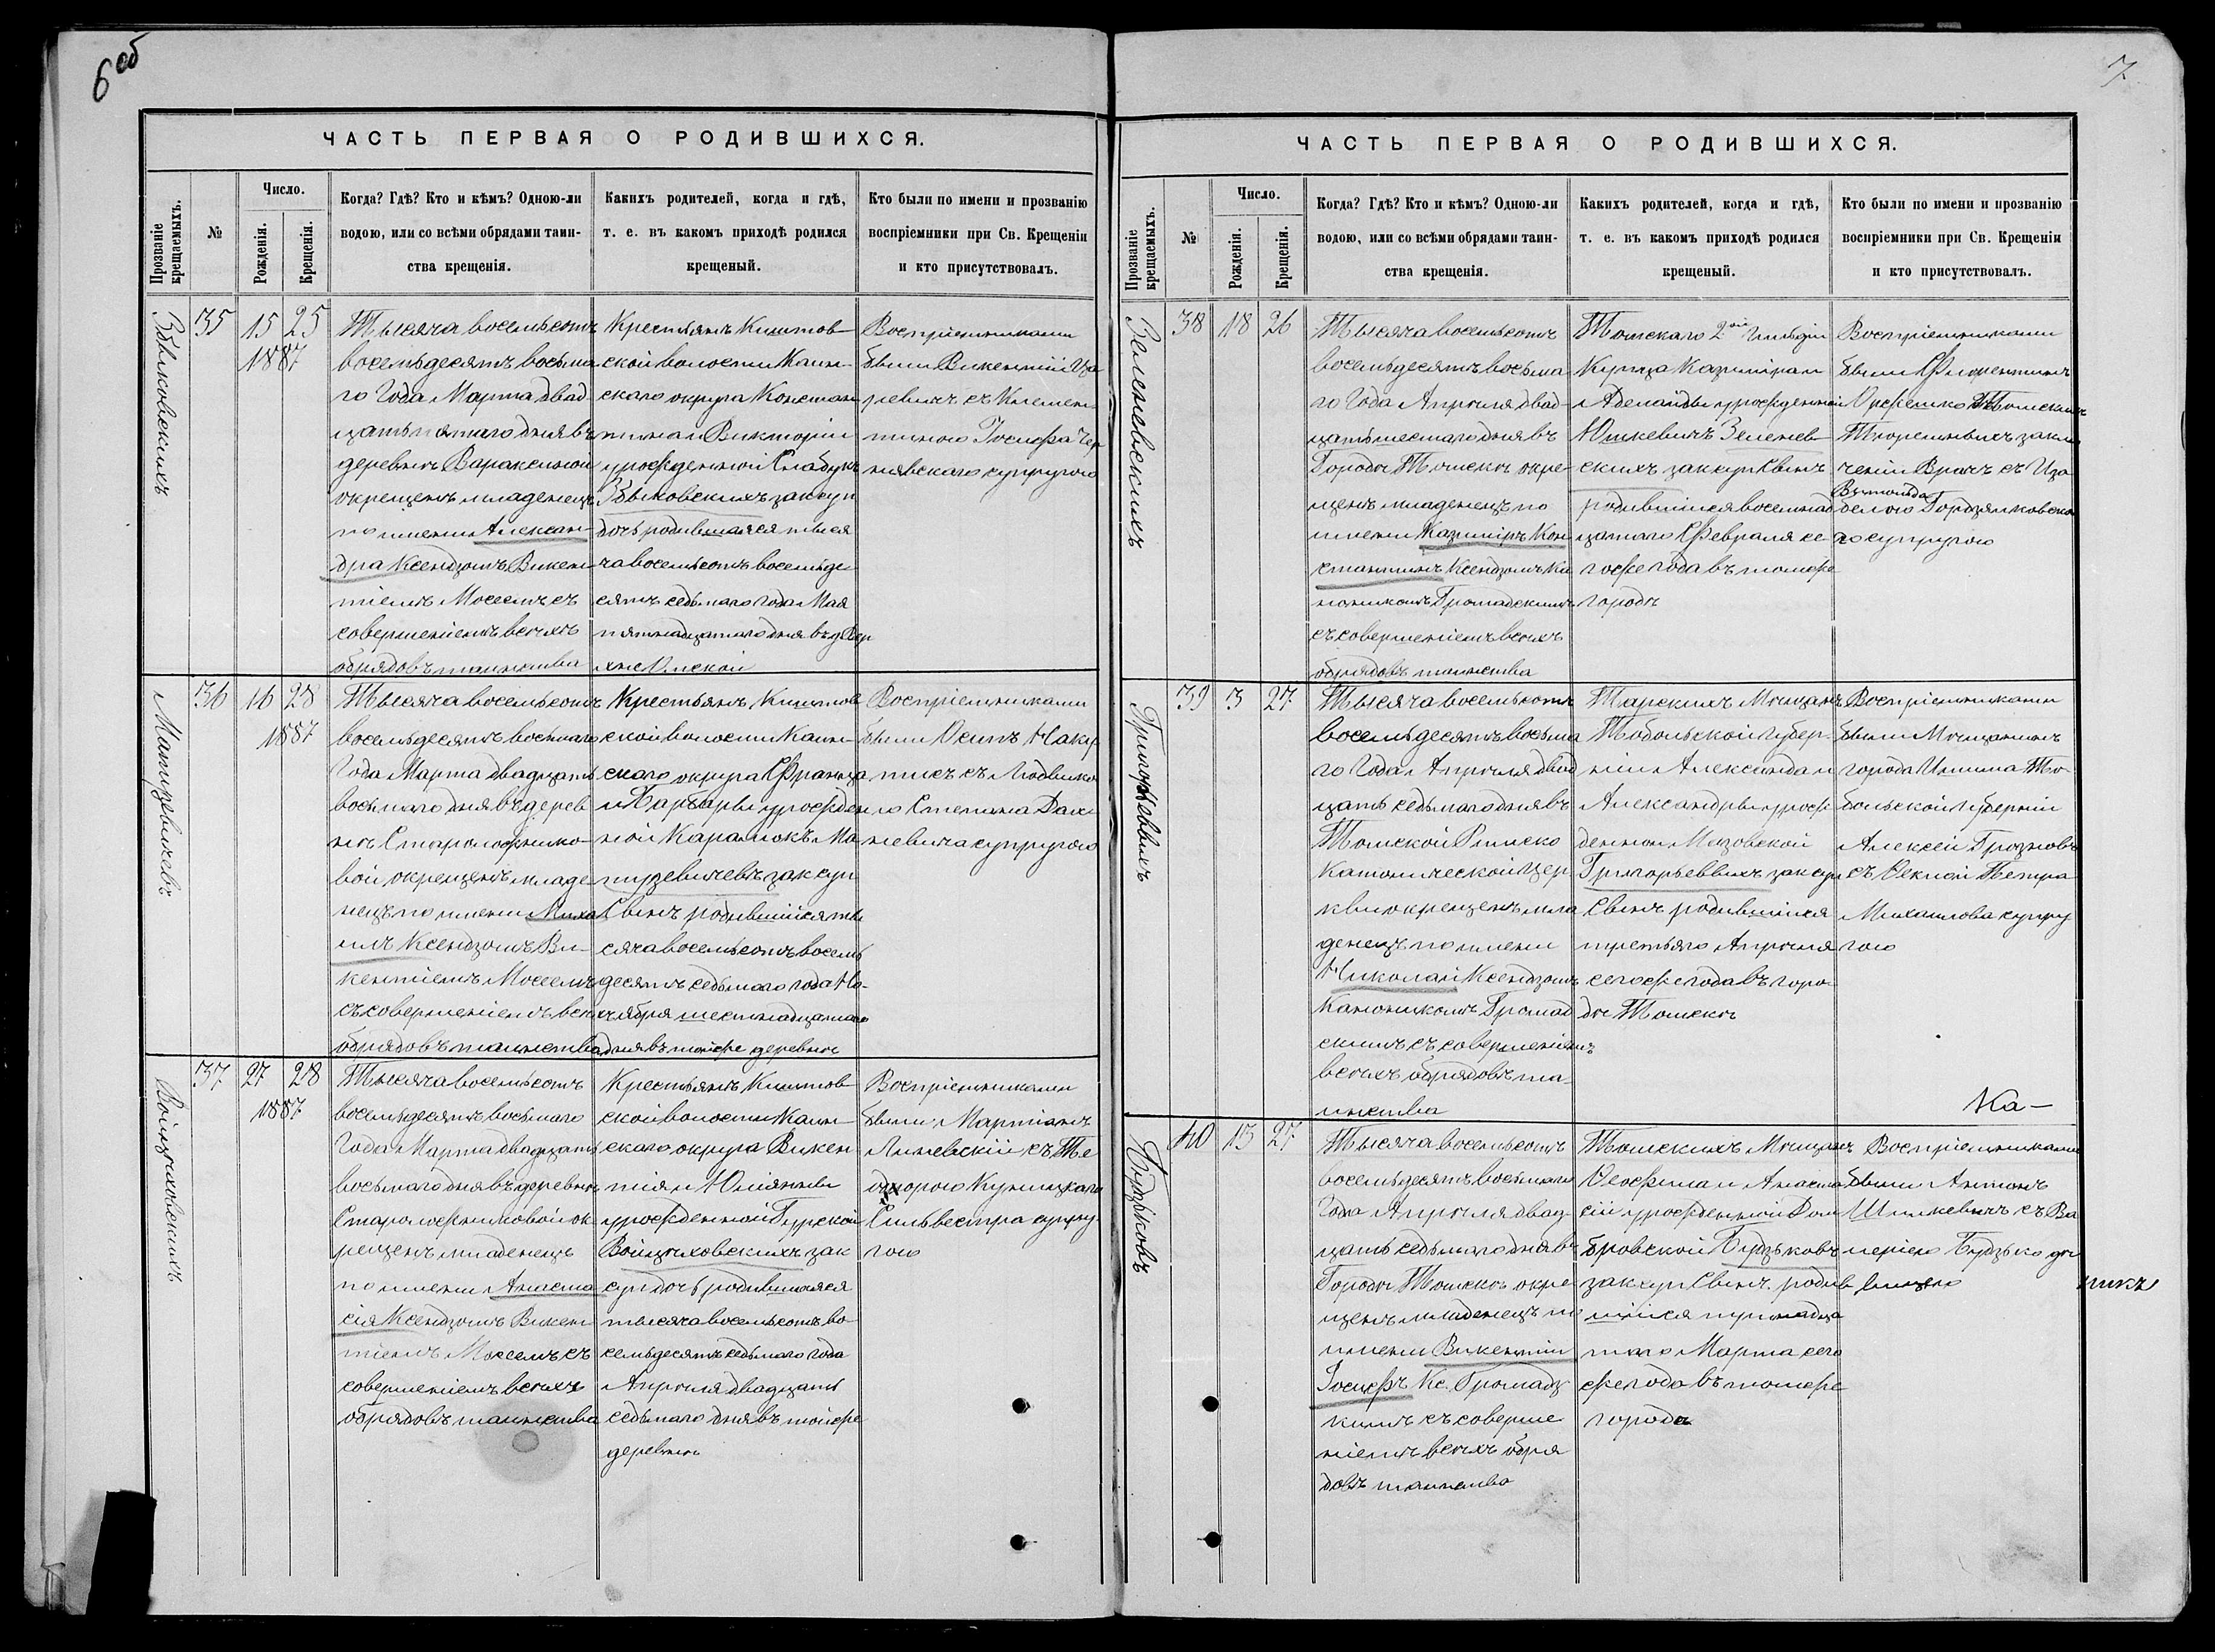 6 об
ЧАСТЬ ПЕРВАЯ О РОДИВШИХСЯ.
Прозваніе крещаемыхъ.
№
Число.
Рожденія.
Крещенія.
Когда? Гдѣ? Кто и кѣмъ? Одною-ли
водою, или со всѣми обрядами таин-
ства крещенія.
Какихъ родителей, когда и гдѣ,
т. е. въ какомъ приходѣ родился
крещеный.
Кто были по имени и прозванію
воспріемники при Св. Крещеніи
и кто присутствовалъ.
35
15
25
1887
Тысяча восемьсотъ
восемьдесятъ восьма
го Года Марта двад
цать пятаго дня въ
деревнѣ Вараксиной
окрещенъ младенецъ
по имени Алексан
дра Ксендзомъ Викен
тіемъ Мосемъ съ
совершеніемъ всѣхъ
обрядовъ таинства
Крестьянъ Киштов
ской волости Каин-
скаго округа Констан
тина и Викторіи
урожденной
Збыковскихъ зак суп
дочь родившаяся тыся
ча восемьсотъ восемьде
сятъ седьмаго года Мая
пятнадцатаго дня въ
Воспріемниками
были Викентій
съ Клемен
тиною Іосифа Чер
нявскаго супругою
Збыковскихъ
36
16
28
1887
Тысяча восемьсотъ
восемьдесятъ восьмаго
Года Марта двадцать
восьмаго дня въ дерев
нѣ Староложнико-
вой окрещенъ младе
нецъ по имени Миха
илъ Ксендзомъ Ви-
кентіемъ Мосемъ
съ совершеніемъ всѣхъ
обрядовъ таинства
Крестьянъ Киштов
ской волости Каин-
скаго округа Франца
и Барбары урожден
ной Карамокъ Ма
туцевичевъ зак суп
Сынъ родившійся ты
сяча восемьсотъ восемь
десятъ седьмаго года Но-
ября шестнадцатаго
дня въ тойже деревнѣ
Воспріемниками
были Осипъ Наку
тисъ съ Людвико
ю Степана Дах
невича супругою
Матуцевичевъ
37
27
28
1887
Тысяча восемьсотъ
восемьдесятъ восьмаго
Года Марта двадцать
восьмаго дня въ деревнѣ
Староложниковой ок
рещенъ младенецъ
по имени Анаста
сія Ксендзомъ Викен
тіемъ Мосемъ съ
совершеніемъ всѣхъ
обрядовъ таинства
Крестьянъ Киштов
ской волости Каин
скаго округа Викен
тія и Юліянны
урожденной Гурской
Войцѣховскихъ зак
суп дочь родившаяся
тысяча восемьсотъ во
семьдесятъ седьмаго года
Апрѣля двадцать
седьмаго дня въ тойже
деревнѣ
Воспріемниками
были Мартіанъ
Линевскій съ Те
одорою Куницкаго
Сильвестра супру
гою
Войцѣховскихъ
7
ЧАСТЬ ПЕРВАЯ О РОДИВШИХСЯ.
Прозваніе крещаемыхъ.
№
Число.
Рожденія.
Крещенія.
Когда? Гдѣ? Кто и кѣмъ? Одною-ли
водою, или со всѣми обрядами таин-
ства крещенія.
Какихъ родителей, когда и гдѣ,
т. е. въ какомъ приходѣ родился
крещеный.
Кто были по имени и прозванію
воспріемники при Св. Крещеніи
и кто присутствовалъ.
38
18
26
Тысяча восемьсотъ
восемьдесятъ восьма
го Года Апрѣля двад-
цать шестаго дня въ
Городѣ Томскѣ окре-
щенъ младенецъ по
имени Казиміръ Кон
стантинъ Ксендзомъ Ка
ноникомъ Громадскимъ
съ совершеніемъ всѣхъ
обрядовъ таинства
Томскаго 2ой Гильдіи
Купца Казиміра и
Аделаиды урожденной
Юшкевичъ Зеленев
скихъ зак суп Сынъ
родившійся восемнад
цатаго Февраля се-
гоже года въ томже
городѣ
Воспріемниками
были Флорентинъ
Оржешко Томскихъ
Тюремныхъ заклю
ченій Врачъ съ Иза
Витольда
белою Гордзялковска
го супругою
Зеленевскихъ
39
3
27
Тысяча восемьсотъ
восемьдесятъ восьма
го Года Апрѣля двад
цать седьмаго дня въ
Томской Римско
Католической Цер
кви окрещенъ мла
денецъ по имени
Николай Ксендзомъ
Каноникомъ Громад
скимъ съ совершеніемъ
всѣхъ обрядовъ та-
инства
Тарскихъ Мѣщанъ
Тобольской Губер-
ніи Александа и
Александры урож
денной Мазовской
Григорьевыхъ зак суп
Сынъ родившійся
третьяго Апрѣля
сегоже года въ горо
дѣ Томскѣ
Воспріемниками
были Мѣщанинъ
города Ишима То-
больской Губерніи
Алексѣй Грязновъ
съ Феклой Петра
Михаилова супру
гою
Ка-
40
13
27
Тысяча восемьсотъ
восемьдесятъ восьмаго
Года Апрѣля двад
цать седьмаго дня въ
Городѣ Томскѣ окре
щенъ младенецъ по
имени Викентій
Іосифъ Кс. Громадс
кимъ съ соверше
ніемъ всѣхъ обря
довъ таинства
Томскихъ Мѣщанъ
Осифа и Анаста
сіи урожденной Дом
бровской Будзьковъ
зак суп Сынъ родив
шійся тринадца
таго Марта сего
же года въ томже
городѣ
Воспріемниками
были Антонъ
Шимкевичъ съ Ва
леріею Будзько дѣ
вицею
Будзьковъ